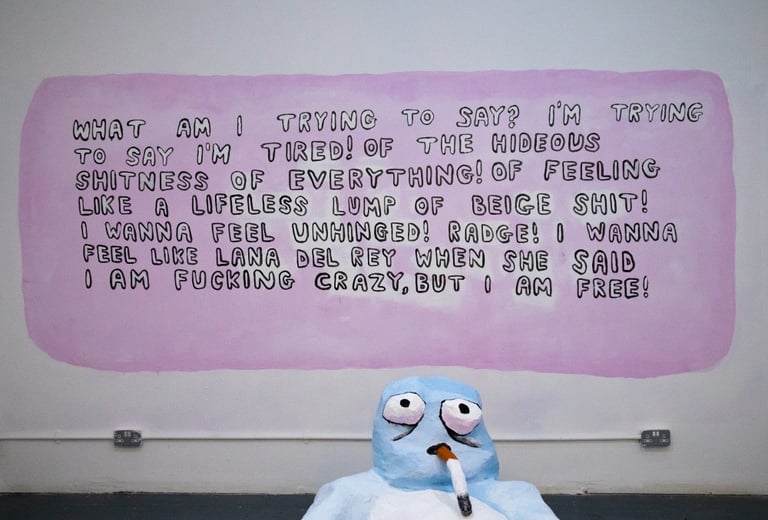 WHAT AM I TRYING TO SAY? I'M TRYING
TO SAY I'M TIRED! OF THE HIDEOUS
SHITNESS OF EVERYTHING! OF FEELING
LIKE A LIFELESS LUMP OF BEIGE SHIT!
I WANNA FEEL UNHINGED! RADGE! I WANNA
FEEL LIKE LANA DEL REY WHEN SHE SAID
I AM FUCKING CRAZY, BUT I AM FREE!